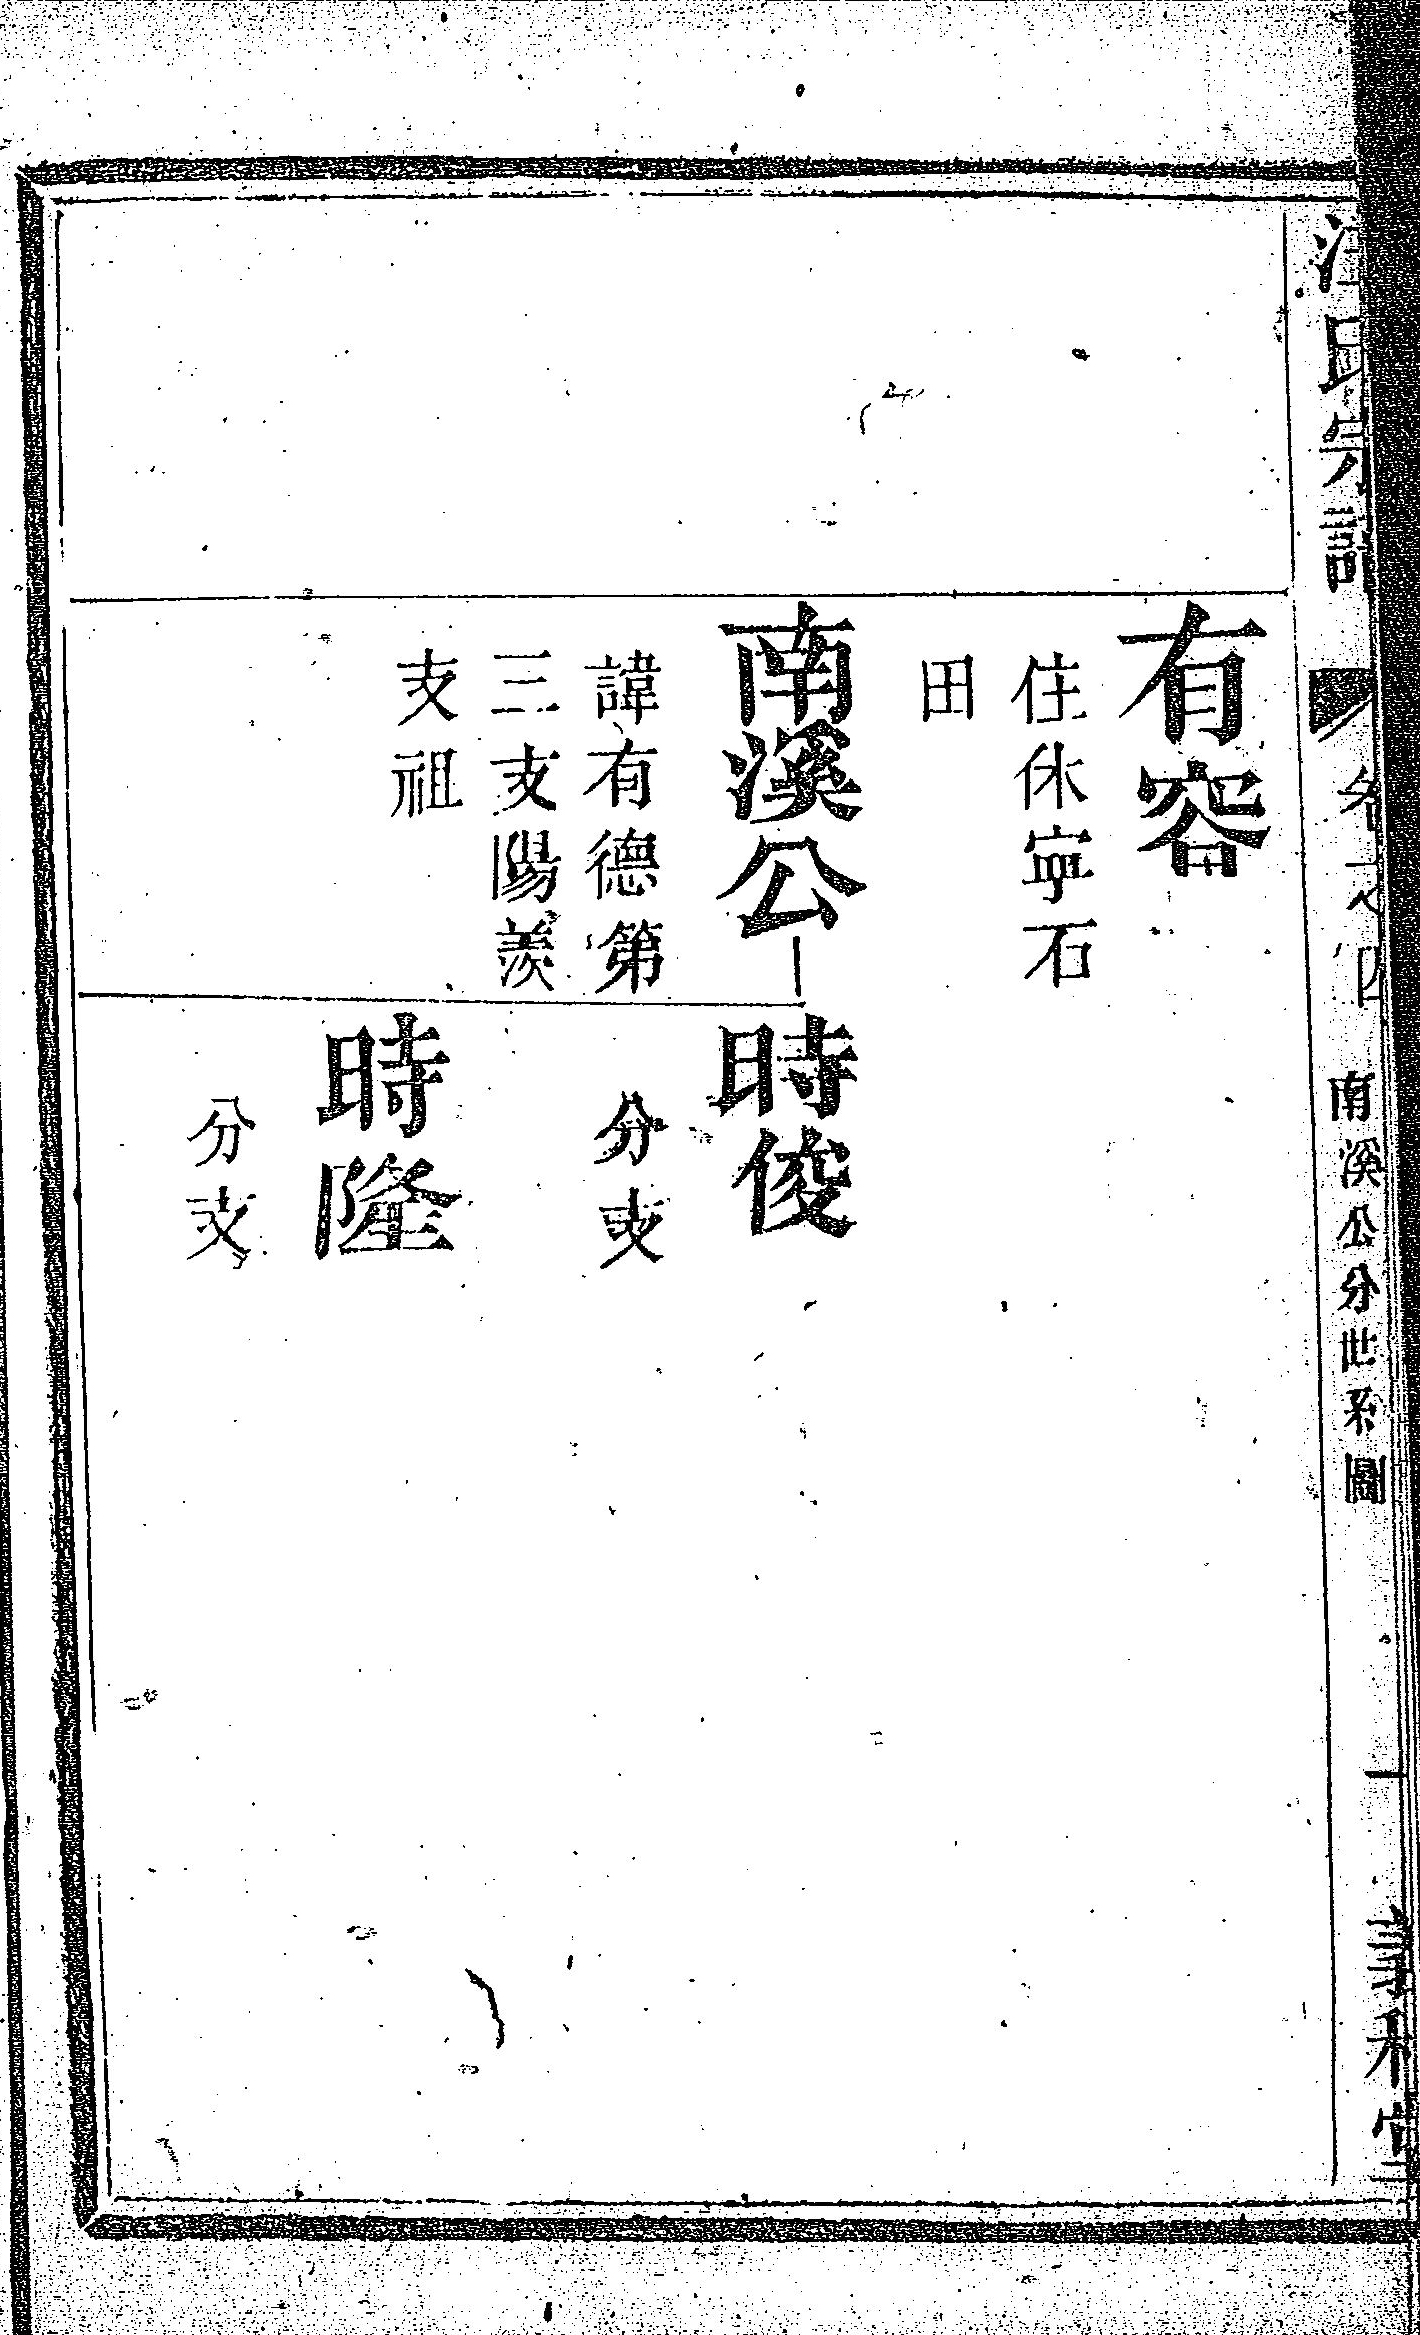 汪氏宗譜
南溪公分世系圖
一
有容
住休寧石
田
南溪公
諱有德第
三支陽羨
支祖
時俊
分支
時隆
分支